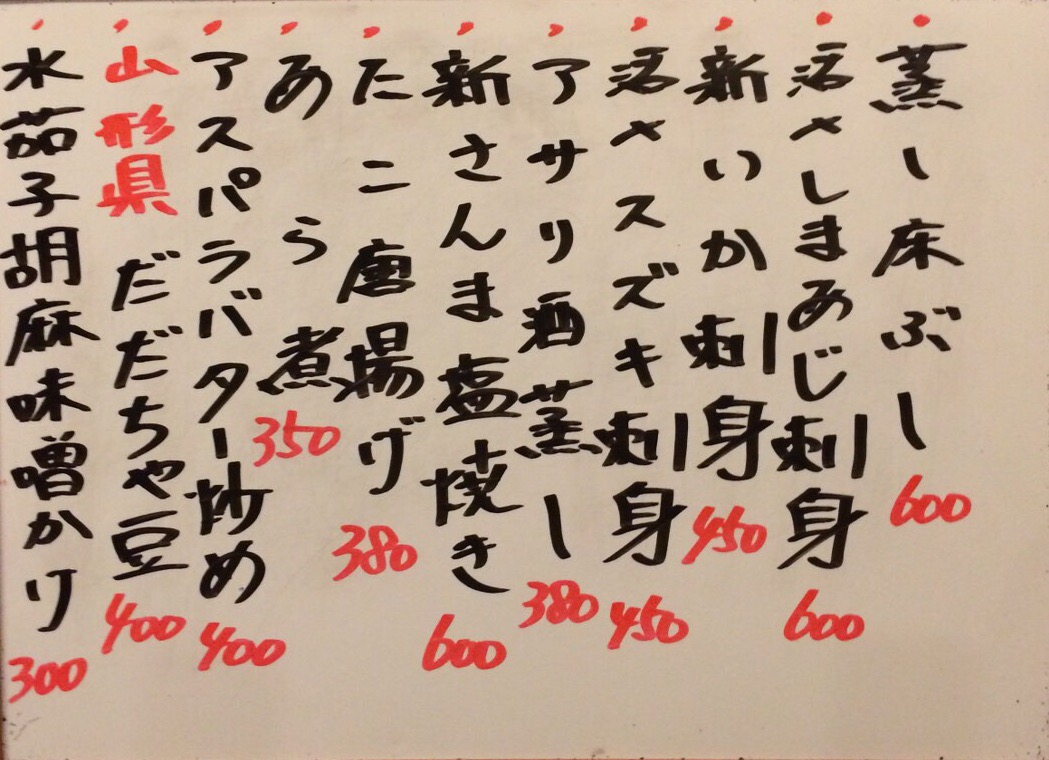 蒸し床ぶし 600
活〆しまあじ刺身 600
新いか刺身 450
活〆スズキ刺身 450
アサリ酒蒸し 380
新さんま塩焼き 600
たこ唐揚げ 380
あら煮 350
アスパラバター炒め 400
山形県だだちゃ豆 400
水茄子胡麻味噌かり 300